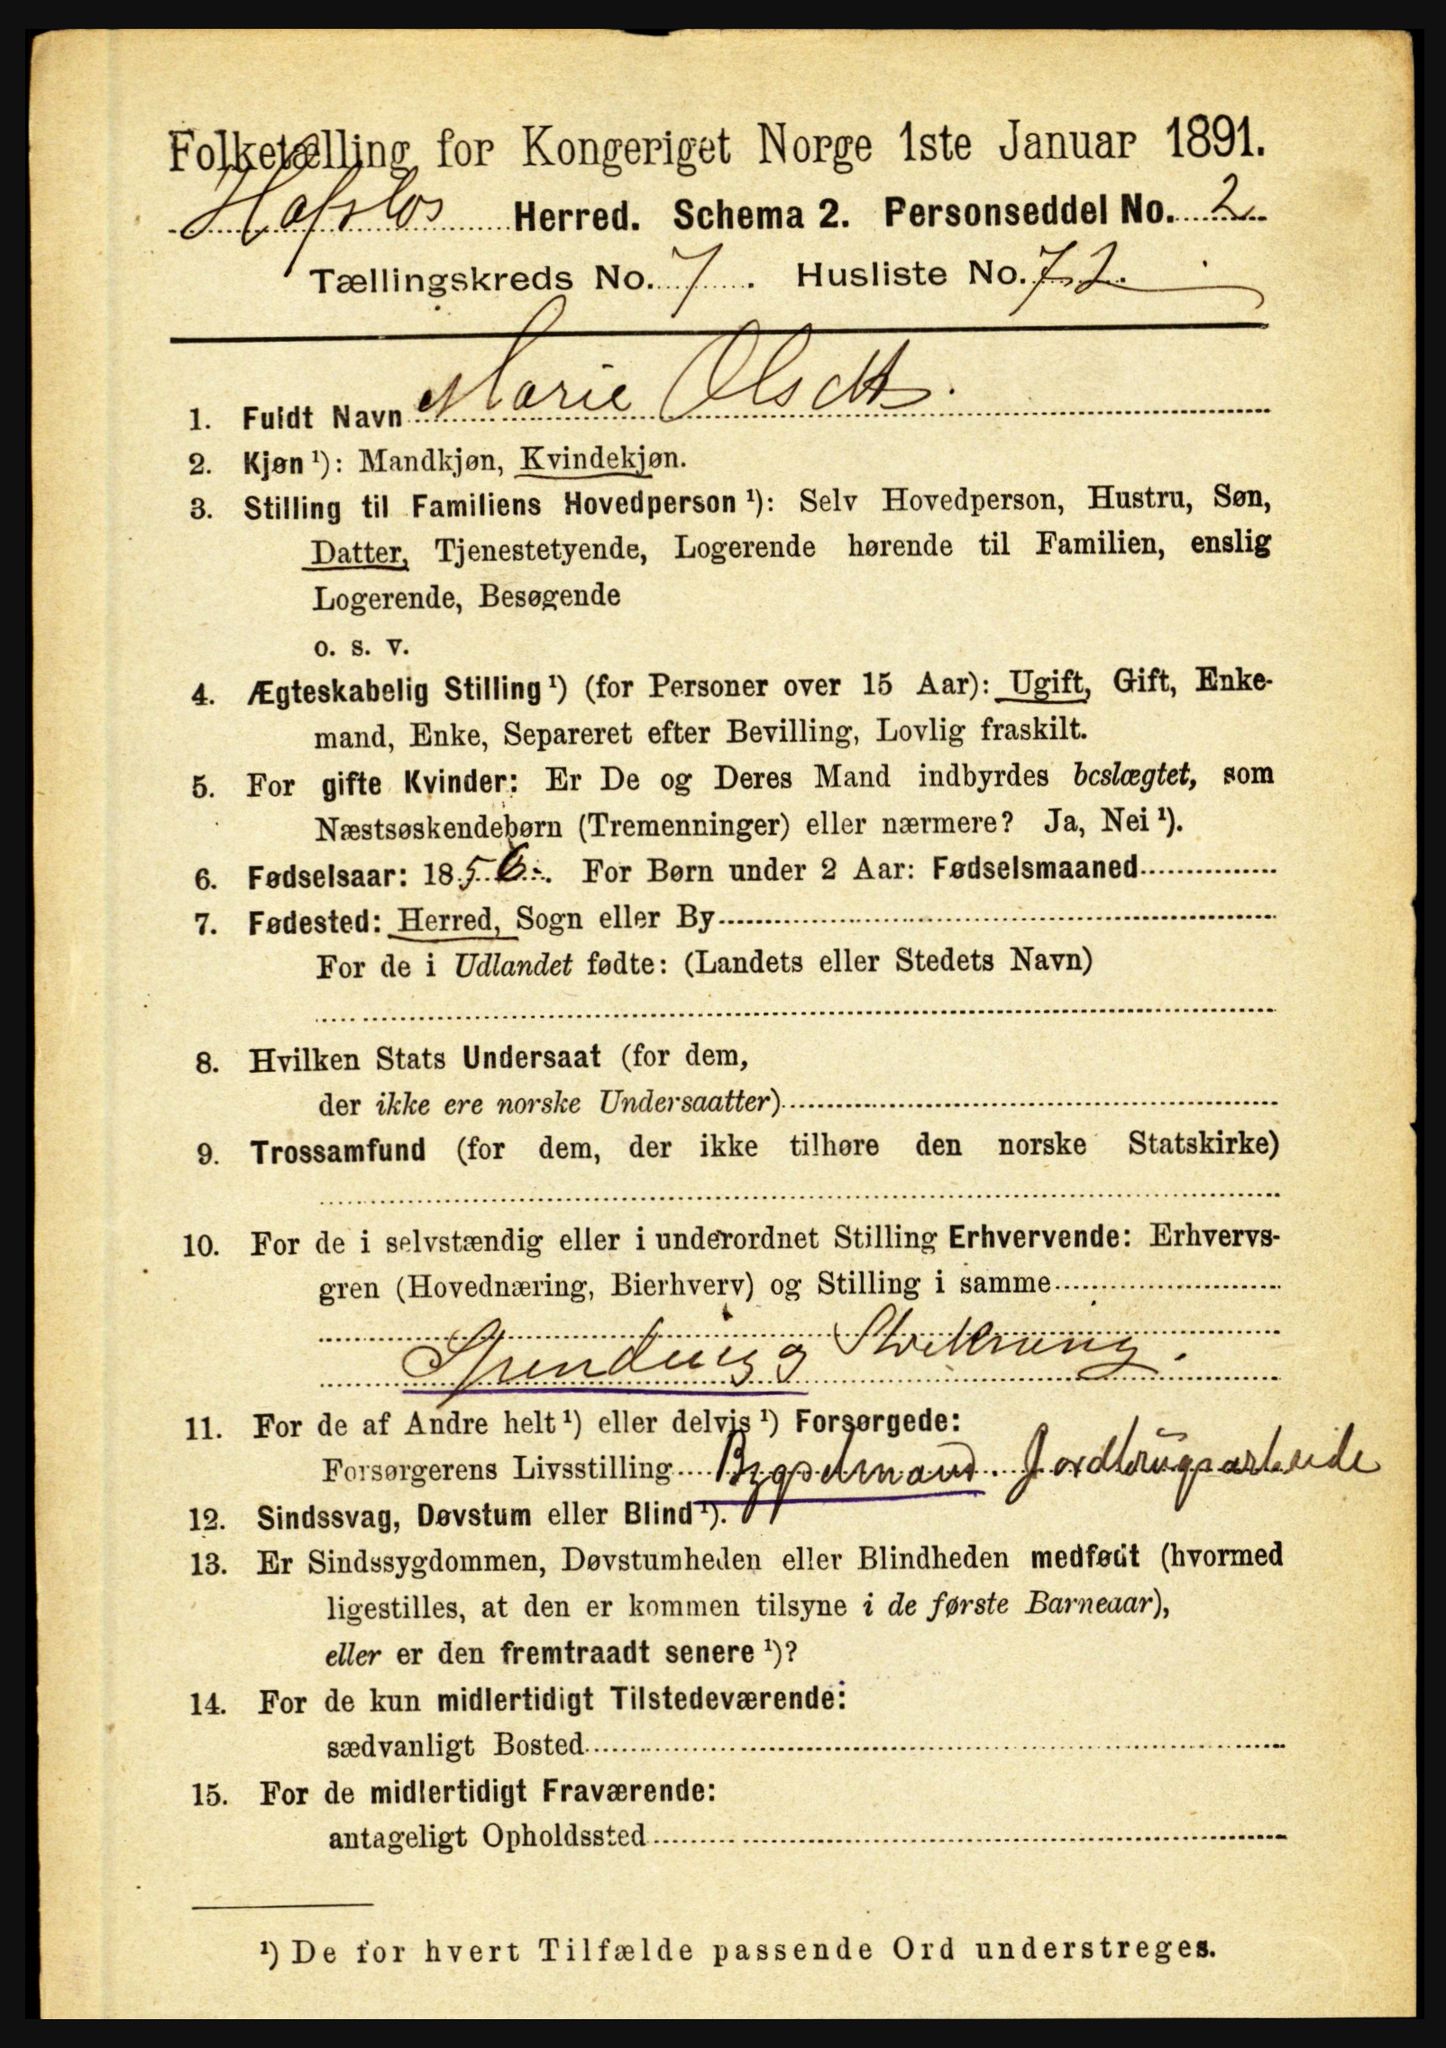 Folketælling for Kongeriget Norge 1ste Januar 1891.
Hafslo Herred. Schema 2. Personseddel No. 2
Tællingskreds No. 7. Husliste No. 72.
1. Fuldt Navn Marie Olsdtr.
2. Kjøn ¹): Mandkjøn, Kvindekjøn.
3. Stilling til Familiens Hovedperson ¹): Selv Hovedperson, Hustru, Søn,
Datter, Tjenestetyende, Logerende hørende til Familien, enslig
Logerende, Besøgende
o. s. v.
4. Ægteskabelig Stilling ¹) (for Personer over 15 Aar): Ugift, Gift, Enke-
mand, Enke, Separeret efter Bevilling, Lovlig fraskilt.
5. For gifte Kvinder: Er De og Deres Mand indbyrdes beslægtet, som
Næstsøskendebørn (Tremenninger) eller nærmere? Ja, Nei ¹).
6. Fødselsaar: 1856. For Børn under 2 Aar: Fødselsmaaned
7. Fødested: Herred, Sogn eller By
For de i Udlandet fødte: (Landets eller Stedets Navn)
8. Hvilken Stats Undersaat (for dem,
der ikke ere norske Undersaatter)
9. Trossamfund (for dem, der ikke tilhøre den norske Statskirke)
10. For de i selvstændig eller i underordnet Stilling Erhvervende: Erhvervs-
gren (Hovednæring, Bierhverv) og Stilling i samme
Spinding og Strikning.
11. For de af Andre helt ¹) eller delvis ¹) Forsørgede:
Forsørgerens Livsstilling Bygselmand. Jordbrugsarbeide
12. Sindssvag, Døvstum eller Blind ¹).
13. Er Sindssygdommen, Døvstumheden eller Blindheden medfødt (hvormed
ligestilles, at den er kommen tilsyne i de første Barneaar),
eller er den fremtraadt senere ¹)?
14. For de kun midlertidigt Tilstedeværende:
sædvanligt Bosted
15. For de midlertidigt Fraværende:
antageligt Opholdssted
¹) De for hvert Tilfælde passende Ord understreges.